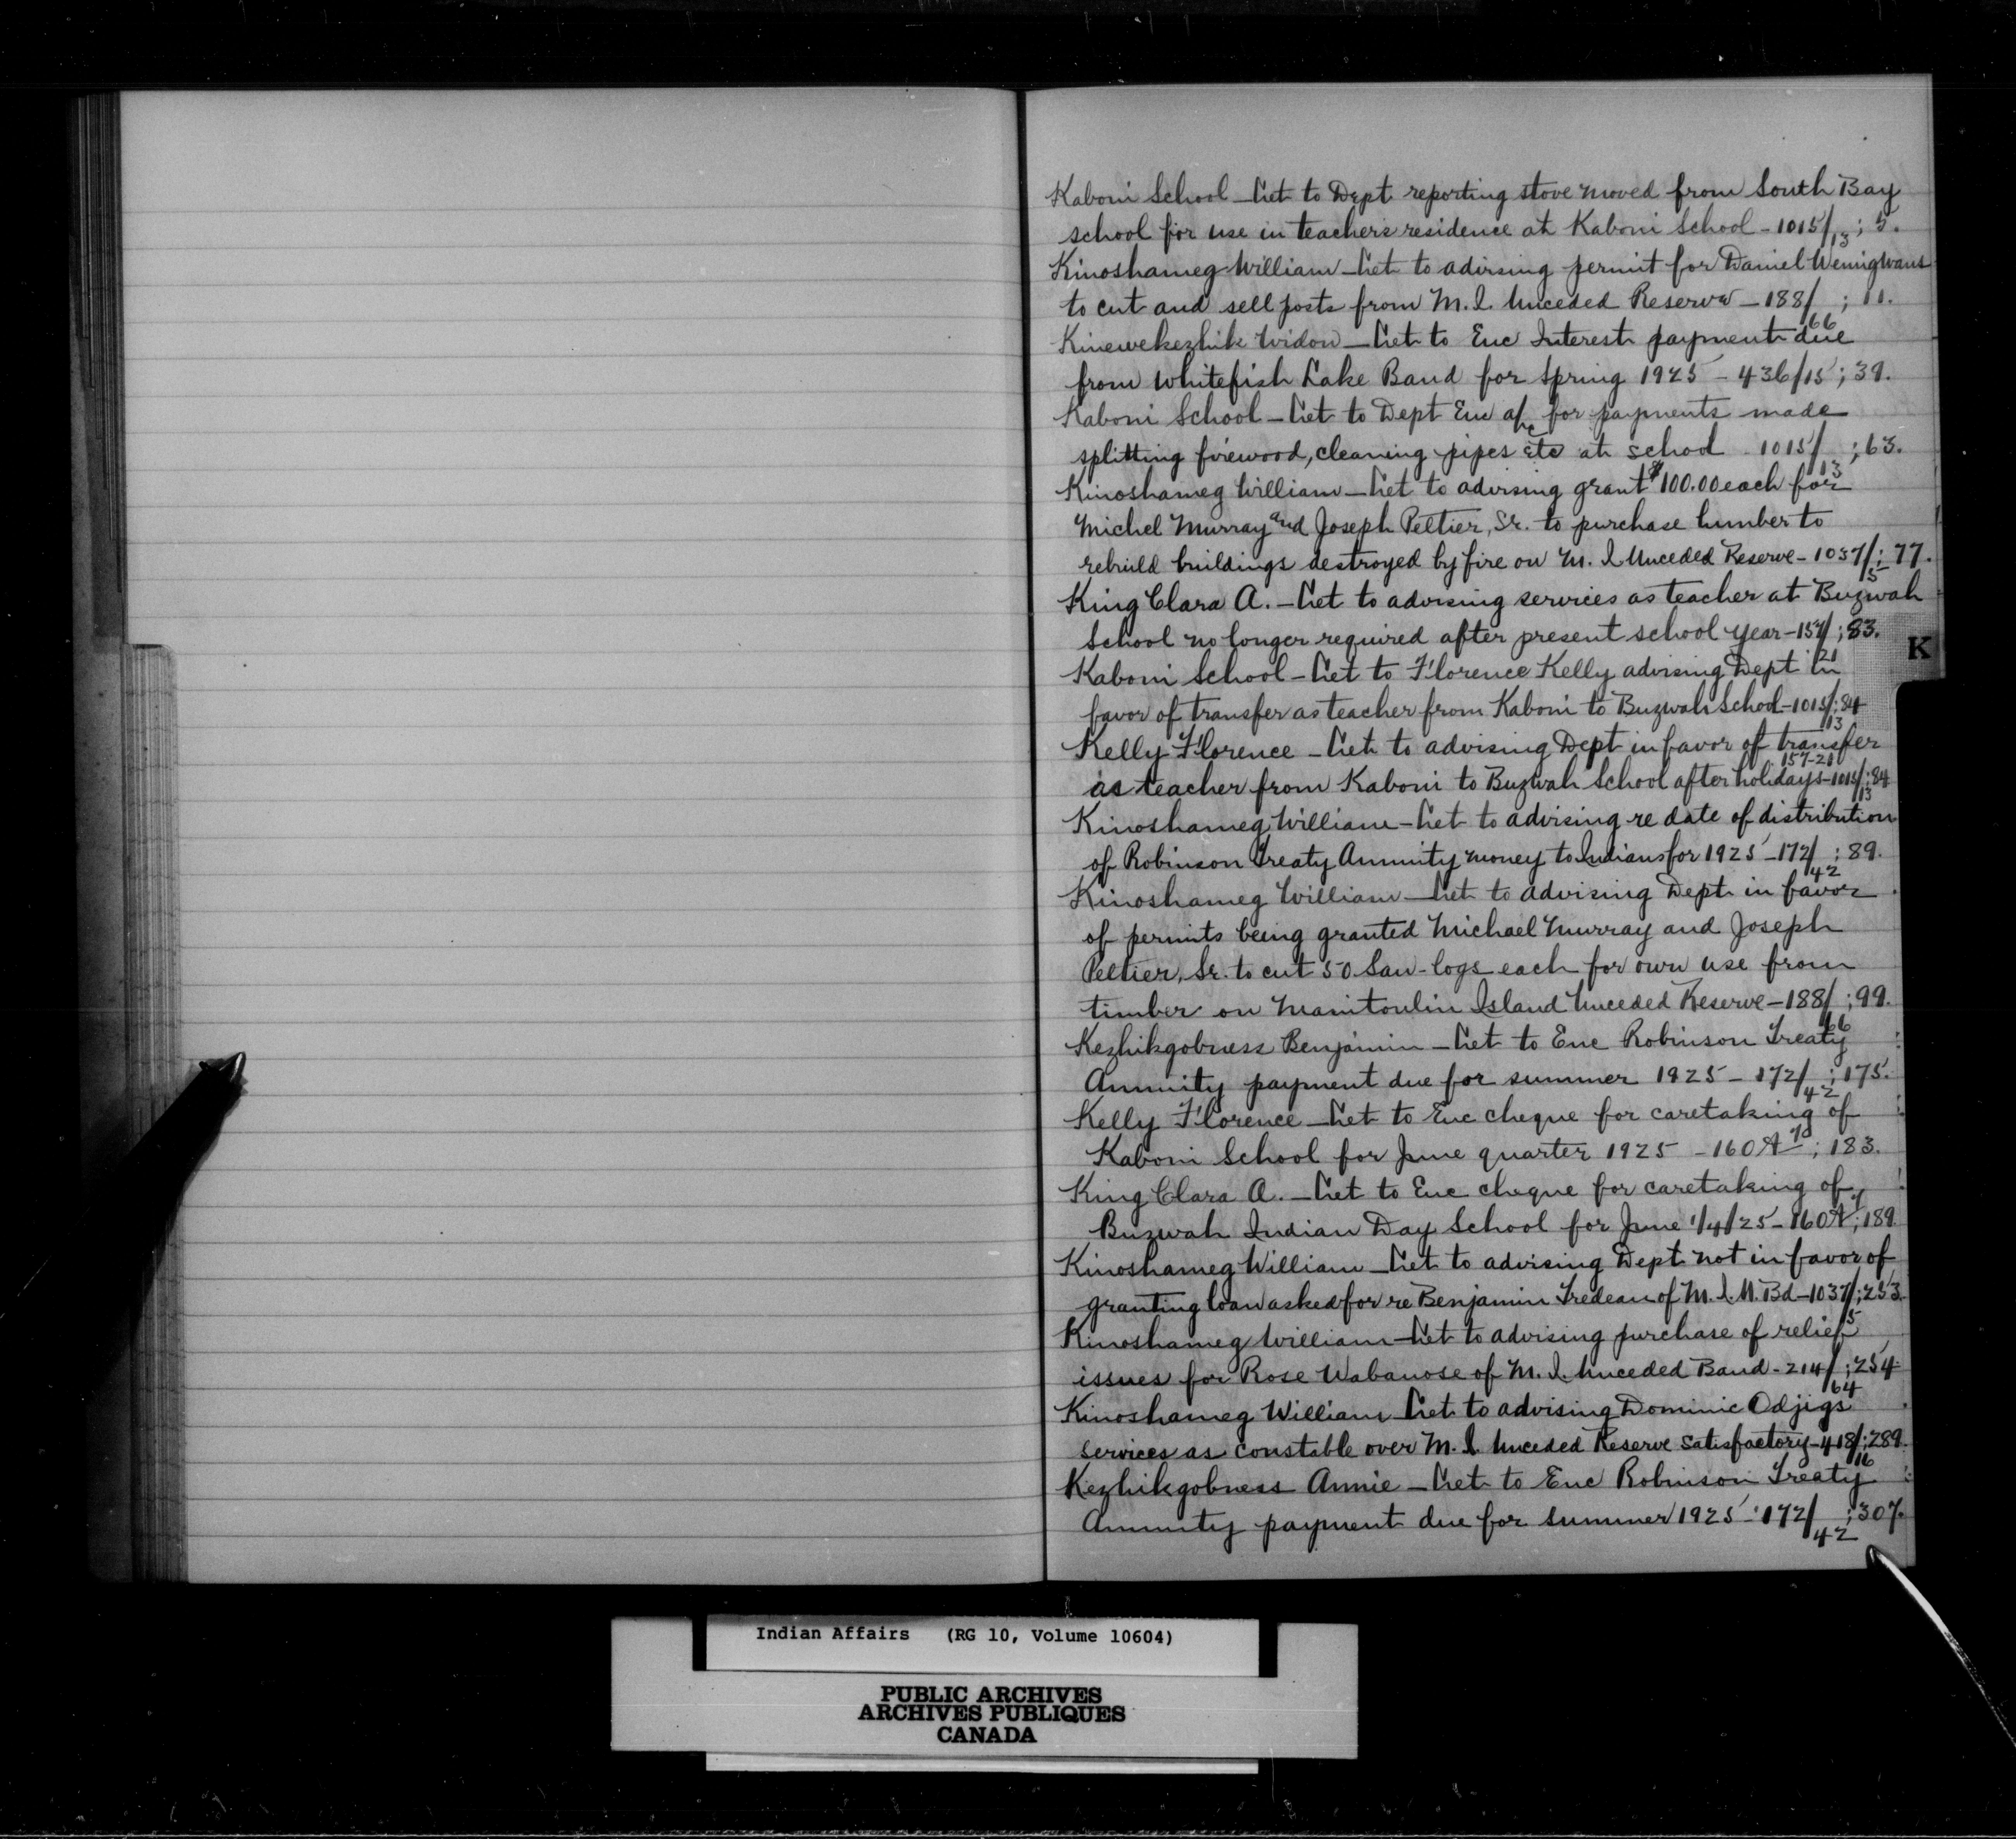 Kaboni School – Let to Dept reporting stove moved from South Bay
school for use in teachers residence at Kaboni School – 1015/13 ; 5.
Kinoshameg William – Let to adirsing permit for Daniel Wemigwans
to cut and sell posts from M. I. Unceded Reserve – 188/66 ; 11.
Kinewekezhik Widow – Let to Enc Interest payment due
from Whitefish Lake Band for Spring 1925 – 436/15 ; 39.
Kaboni School – Let to Dept Enc a/c for payments made
splitting firewood, cleaning pipes etc at school 1015/13 ; 63.
Kinoshameg William – Let to advising grant $100.00 each for
Michel Murray and Joseph Peltier, Sr. to purchase lumber to
rebuild buildings destroyed by fire on M. I. Unceded Reserve – 1037/5 ; 77.
King Clara A. – Let to advising services as teacher at Buzwah
School no longer required after present school year – 157/21 ; 83.
Kaboni School – Let to Florence Kelly advising Dept in
favor of transfer as teacher from Kaboni to Buzwah School – 1015/13 ; 84
Kelly Florence – Let to advising Dept in favor of transfer
as teacher from Kaboni to Buzwah School after holidays – 157-21 1015/13 ; 84
Kinoshameg William – Let to advising re date of distribution
of Robinson Treaty Annuity money to Indians for 1925 – 172/42 ; 89.
Kinoshameg William – Let to advising Dept in favor
of permits being granted Michael Murray and Joseph
Peltier, Sr. to cut 50 Saw-logs each for own use from
timber on Manitoulin Island Unceded Reserve – 188/66 ; 99.
Kezhikgobness Benjamin – Let to Enc Robinson Treaty
Annuity payment due for summer 1925 – 172/42 ; 175.
Kelly Florence – Let to Enc cheque for caretaking of
Kaboni School for June quarter 1925 – 160A ; 183.
King Clara A. – Let to Enc cheque for caretaking of
Buzwah Indian Day School for June 1/4/25 – 160A ; 189.
Kinoshameg William – Let to advising Dept not in favor of
granting loan asked for re Benjamin Tredeau of M. I. U. Bd – 1037/5 ; 253.
Kinoshameg William – Let to advising purchase of relief
issues for Rose Wabanose of M. I. Unceded Band – 214/64 ; 254
Kinoshameg William – Let to advising Dominic Odjigs
services as constable over M. I. Unceded Reserve Satisfactory – 418/16 ; 289.
Kezhikgobness Annie – Let to Enc Robinson Treaty
Annuity payment due for summer 1925 – 172/42 ; 307.
K
Indian Affairs (RG 10, Volume 10604)
PUBLIC ARCHIVES
ARCHIVES PUBLIQUES
CANADA